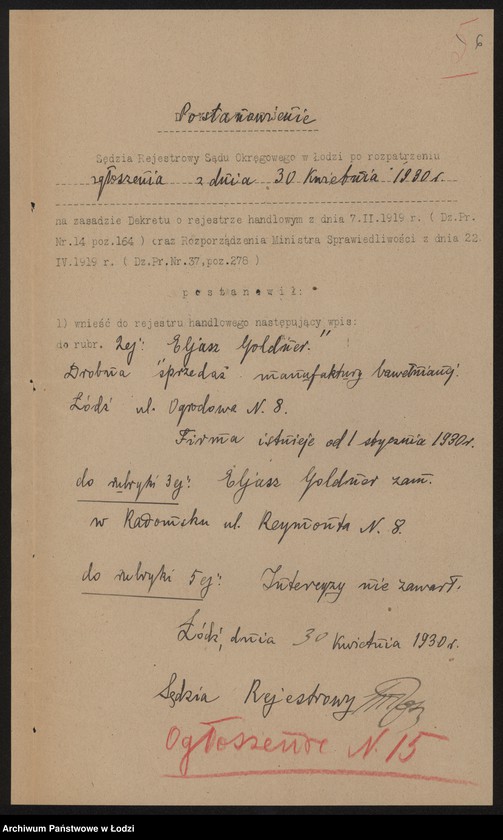 6
Postanowienie
Sędzia Rejestrowy Sądu Okręgowego w Łodzi po rozpatrzeniu
zgłoszenia z dnia 30 Kwietnia 1930 r.
na zasadzie Dekretu o rejestrze handlowym z dnia 7.II.1919 r. ( Dz.Pr.
Nr.14 poz.164 ) oraz Rozporządzenia Ministra Sprawiedliwości z dnia 22
IV.1919 r. ( Dz.Pr.Nr.37,poz.278 )
p o s t a n o w i ł :
1) wnieść do rejestru handlowego następujący wpis:
do rubr. 2ej: Eljasz Goldner."
Drobna sprzedaż manufaktury bawełnianej.
Łódź ul. Ogrodowa N. 8.
Firma istnieje od 1 stycznia 1930r.
do rubryki 3ej: Eljasz Goldner zam.
w Radomsku ul. Reymonta N. 8.
do rubryki 5ej: Intercyzy nie zawarł.
Łódź, dnia 30 Kwietnia 1930 r.
Sędzia Rejestrowy
Ogłoszenie N. 15
Archiwum Państwowe w Łodzi